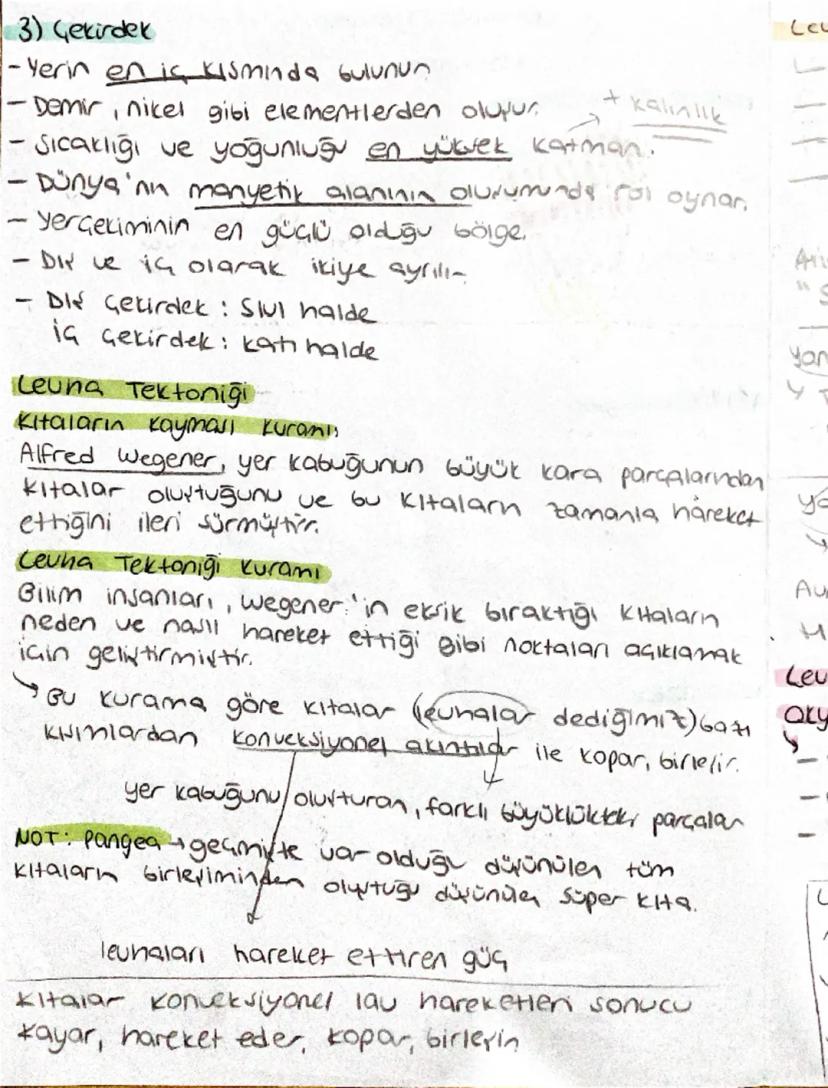 3) Çekirdek
- Yerin en iç kısmında bulunur.
- Demir, nikel gibi elementlerden oluşur.
+ kalınlık
- Sıcaklığı ve yoğunluğu en yüksek katman.
- Dünya'nın manyetik alanının oluşumunda rol oynar.
- Yerçekiminin en güçlü olduğu bölge.
- Dış ve iç olarak ikiye ayrılır.
- Dış Çekirdek : Sıvı halde
İç Çekirdek : Katı halde
Levha Tektoniği
Kıtaların Kayması Kuramı
Alfred Wegener, yer kabuğunun büyük kara parçalarından
kıtalar oluştuğunu ve bu kıtaların zamanla hareket
ettiğini ileri sürmüştür.
Levha Tektoniği Kuramı
Bilim insanları, Wegener'in eksik bıraktığı kıtaların
neden ve nasıl hareket ettiği gibi noktaları açıklamak
için geliştirmiştir.
→ Bu kurama göre kıtalar (levhalar dediğimiz) bazı
kısımlardan konveksiyonel akıntılar ile kopar, birleşir.
yer kabuğunu oluşturan, farklı büyüklükteki parçalar
NOT: Pangea → geçmişte var olduğu düşünülen tüm
kıtaların birleşiminden oluştuğu düşünülen süper kıta.
levhaları hareket ettiren güç
Kıtalar konveksiyonel lav hareketleri sonucu
kayar, hareket eder, kopar, birleşir
Lev
yan
Lev